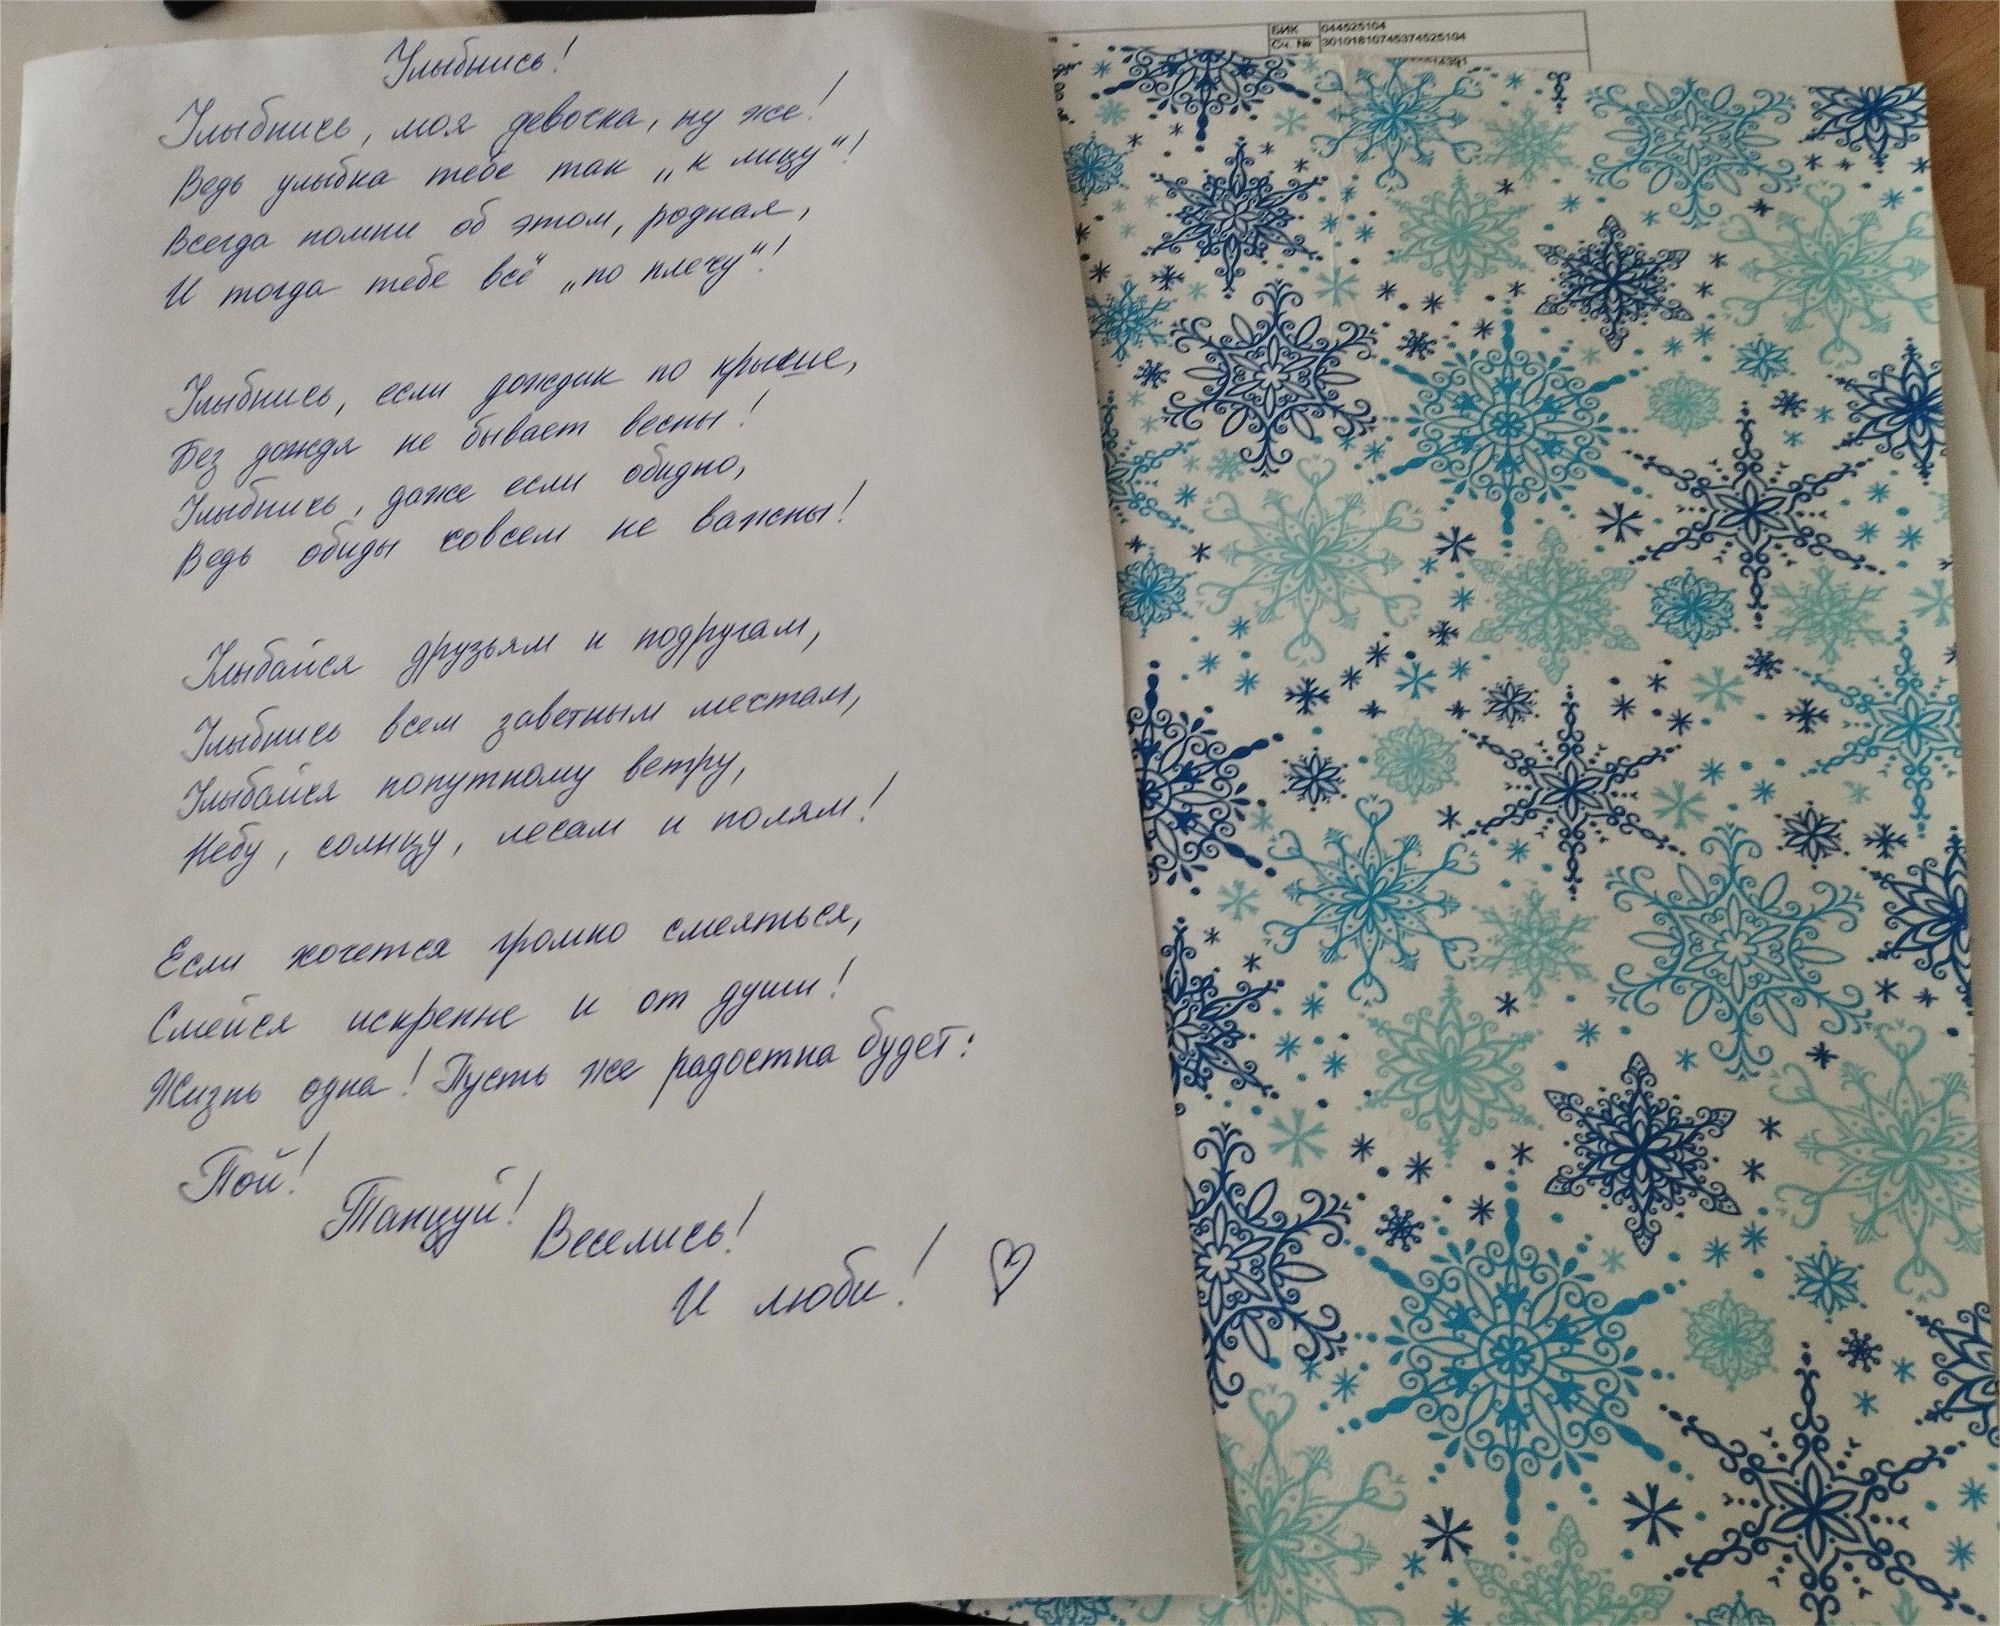 Улыбнись!
Улыбнись, моя девоска, ну же!
Ведь улыбка тебе так „к лицу"!
Всегда помни об этом, родная,
И тогда тебе всё „по плечу"!
Улыбнись, если дождик по крыше,
Без дождя не бывает весны!
Улыбнись, даже если обидно,
Ведь обиды совсем не важны!
Улыбайся друзьям и подругам,
Улыбнись всем заветным местам,
Улыбайся попутному ветру,
Небу, солнцу, лесам и полям!
Если хочется громко смеяться,
Смейся искренне и от души!
Жизнь одна! Пусть же радостна будет:
Пой!
Танцуй!
Веселись!
И люби!
БИК 044525104
Сч. № 30101810745374525104